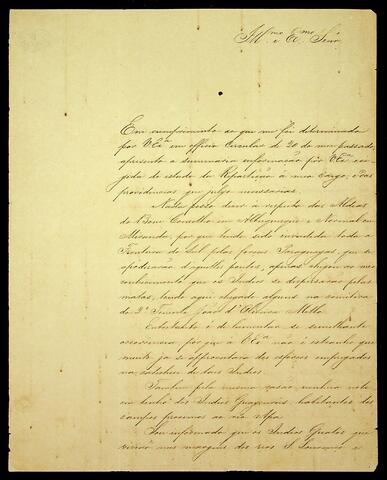 Illmo. e Exmo. Senr.
Em cumprimento ao que me foi determinado
por VExa. em officio Circular de 20 do mez passado,
apresento a summaria informação por VExa. exi-
gida do estado da Repartição à meu Cargo, e das
providencias que julgo necessarias.
Nada posso dizer à respeito das Aldeas
do Bom Conselho em Albuquerque e Normal em
Miranda, por que tendo sido invadida toda a
Fronteira do Sul pelas forças Paraguayas que se
apoderarão d'aquelles pontos, apenas chegou ao meu
conhecimento que os Indios se dispersarão pelas
matas, tendo aqui chegado alguns na comitiva
do 2º Tenente João d'Oliveira Mello.
Entretanto é de lamentar-se semelhante
occorrencia por que a VExa. não é estranho que
muito já se aproveitava dos esforços empregados
na catechese de taes Indios.
Tambem pela mesma razão, nenhuma noti-
cia tenho dos Indios Guaycurús, habitantes dos
campos proximos ao rio Apa.
Sou informado que os Indios Guatós que
vivião nas margens dos rios S. Lourenço e